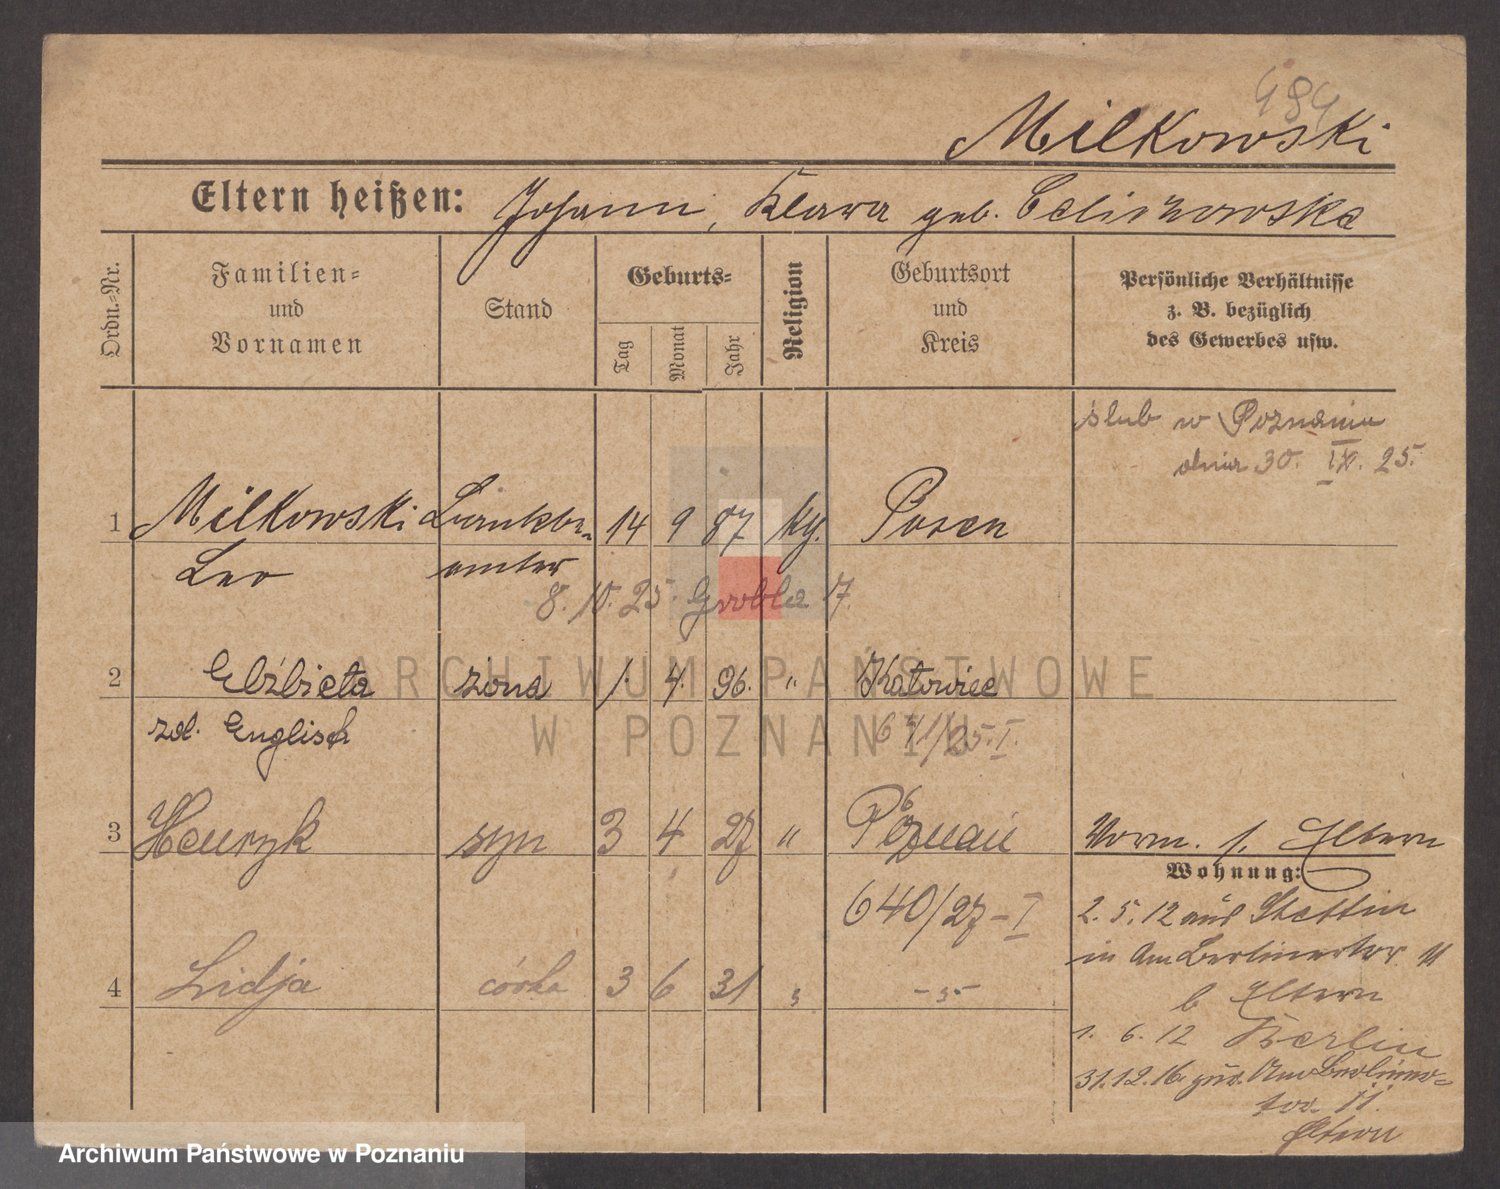 484
Milkowski
Eltern heißen: Johann, Klara geb. Celichowska
Ordn.-Nr.
Familien-
und
Vornamen
Stand
Geburts-
Tag
Monat
Jahr
Religion
Geburtsort
und
Kreis
Persönliche Verhältnisse
z. B. bezüglich
des Gewerbes usw.
ślub w Poznaniu
dnia 30. IX. 25.
1 Milkowski Bankbe- 14 9 87 Posen
Leo amter
8. 10. 25. Grobla 17.
2 Elżbieta żona 1. 4. 96. " Katowice
zd. Englisch 671/25.I.
3 Henryk syn 3 4 27 " Poznań
Vorm. s. Eltern
Wohnung:
640/27-I
2. 5. 12 aus Stettin
in Am Berlinertor 11
b Eltern
4 Lidja córka 3 6 31 " -"-
1. 6. 12 Berlin
31.12.16 zur. Am Berliner-
tor 11.
Eltern
ARCHIWUM PAŃSTWOWE
W POZNANIU
Archiwum Państwowe w Poznaniu